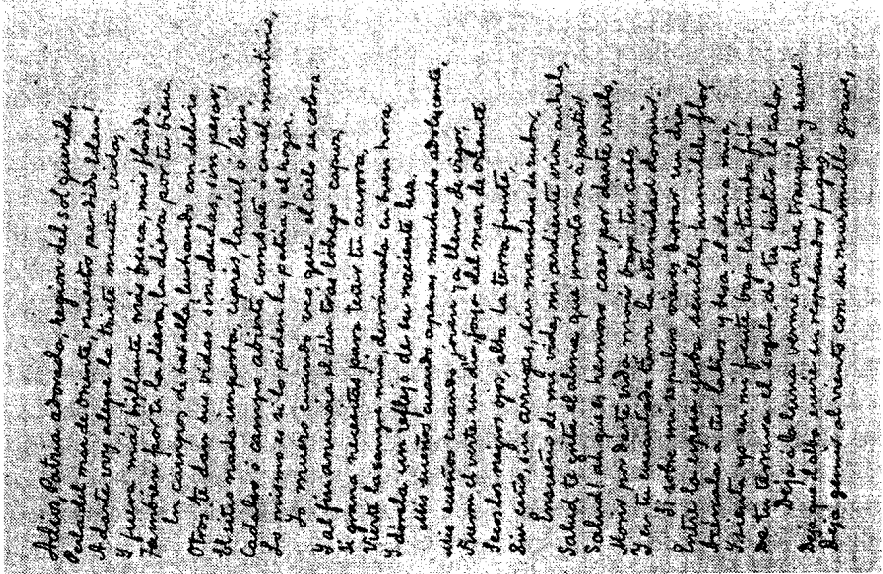 Adios, Patria adorada, region del sol querida,
Perla del mar de oriente, nuestro perdido Eden!
A darte voy alegre la triste mustia vida,
Y fuera más brillante más fresca, más florida
Tambien por ti la diera, la diera por tu bien
En campos de batalla, luchando con delirio
Otros te dan sus vidas sin dudas, sin pesar;
El sitio nada importa, ciprés, laurel ó lirio,
Cadalso ó campo abierto, combate ó cruel martirio,
Lo mismo es si lo piden la patria y el hogar.
Yo muero cuando veo que el cielo se colora
Y al fin anuncia el día trás lóbrego capuz;
Si grana necesitas para teñir tu aurora,
Vierte la sangre mía, derrámala en buen hora
Y dórela un reflejo de su naciente luz.
Mis sueños cuando apenas muchacho adolescente,
Mis sueños cuando joven ya lleno de vigor,
Fueron el verte un día, joya del mar de oriente
Secos los negros ojos, alta la tersa frente,
Sin ceño, sin arrugas, sin manchas de rubor
Ensueño de mi vida, mi ardiente vivo anhelo,
Salud te grita el alma que pronto va á partir!
Salud! ah que es hermoso caer por darte vuelo,
Morir por darte vida, morir bajo tu cielo,
Y en tu encantada tierra la eternidad dormir.
Si sobre mi sepulcro vieres brotar un dia
Entre la espesa yerba sencilla, humilde flor,
Acércala a tus labios y besa al alma mía,
sienta yo en mi frente bajo la tumba fria
De tu ternura el soplo, de tu hálito el calor.
Deja á la luna verme con luz tranquila y suave;
Deja que el alba envíe su resplandor fugaz,
Deja gemir al viento con su murmullo grave,